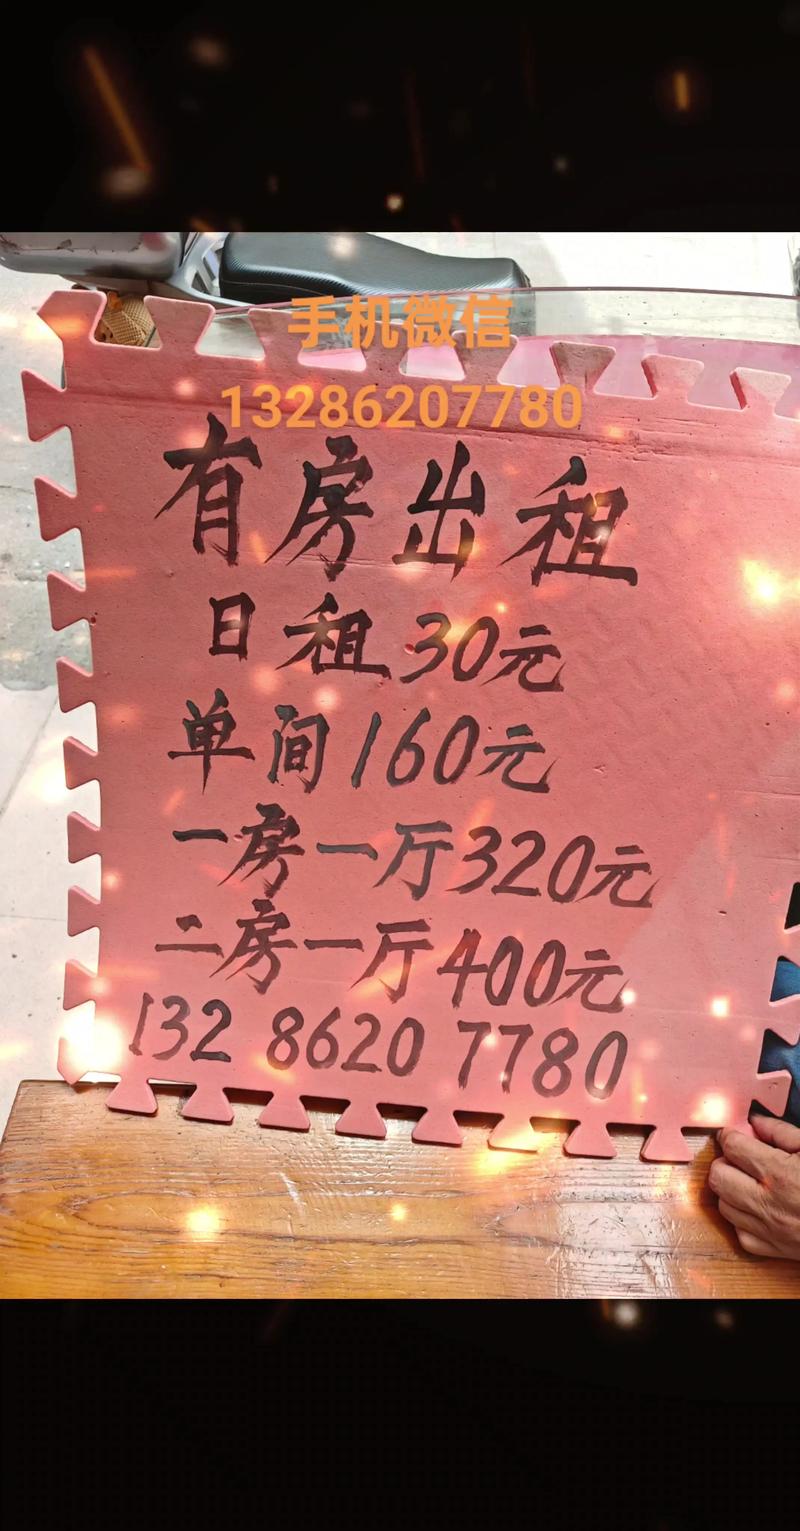 手机微信
13286207780
有房出租
日租30元
单间160元
一房一厅320元
二房一厅400元
132 8620 7780